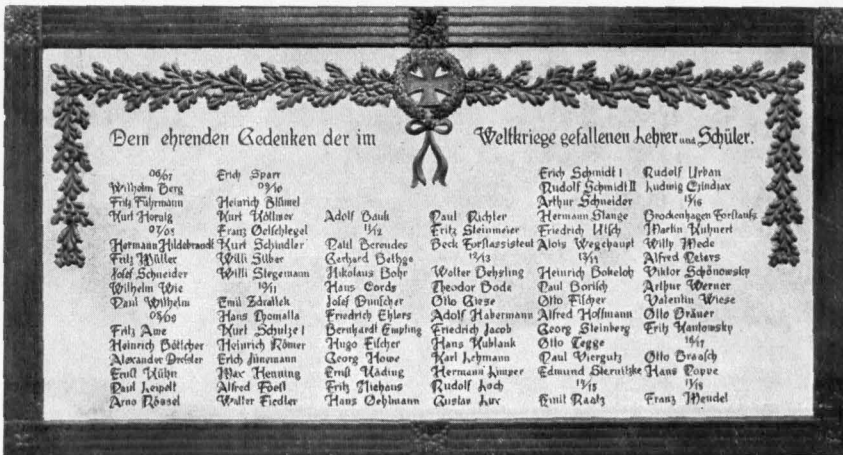 Dem ehrenden Gedenken der im Weltkriege gefallenen Lehrer und Schüler.
06/07
Wilhelm Berg
Fritz Fuhrmann
Kurt Hornig
07/08
Hermann Hildebrandt
Fritz Müller
Josef Schneider
Wilhelm Wie
Paul Wilhelm
08/09
Fritz Ame
Heinrich Böttcher
Alexander Drechsler
Ernst Kühn
Paul Leipelt
Arno Rössel
Erich Sparr
09/10
Heinrich Blümel
Kurt Köllner
Franz Oelschlegel
Kurt Schindler
Willi Silber
Willi Stegemann
10/11
Emil Zdrallek
Hans Thomalla
Kurt Schulze I
Heinrich Römer
Erich Jünemann
Max Henning
Alfred Foest
Walter Fiedler
Adolf Bauk
11/12
Paul Berendes
Gerhard Bethge
Nikolaus Bohr
Hans Cords
Josef Dunscher
Friedrich Ehlers
Bernhardt Empting
Hugo Fischer
Georg Howe
Ernst Käding
Fritz Niehaus
Hans Oehlmann
Paul Richter
Fritz Steinmeier
Beck Forstassistent
12/13
Walter Behsling
Theodor Bode
Otto Giese
Adolf Habermann
Friedrich Jacob
Hans Kublank
Karl Lehmann
Hermann Limper
Rudolf Loch
Gustav Lux
Erich Schmidt I
Rudolf Schmidt II
Arthur Schneider
Hermann Stange
Friedrich Utsch
Alois Wegehaupt
13/14
Heinrich Bokeloh
Paul Borisch
Otto Fischer
Alfred Hoffmann
Georg Steinberg
Otto Tegge
Paul Viergutz
Edmund Sternitzke
14/15
Emil Raatz
Rudolf Urban
Ludwig
15/16
Brockenhagen
Martin Kuhnert
Willy Mede
Alfred Peters
Viktor Schönowsky
Arthur Werner
Valentin Wiese
Otto Bräuer
Fritz Kantowsky
16/17
Otto Braasch
Hans Poppe
17/18
Franz Mendel